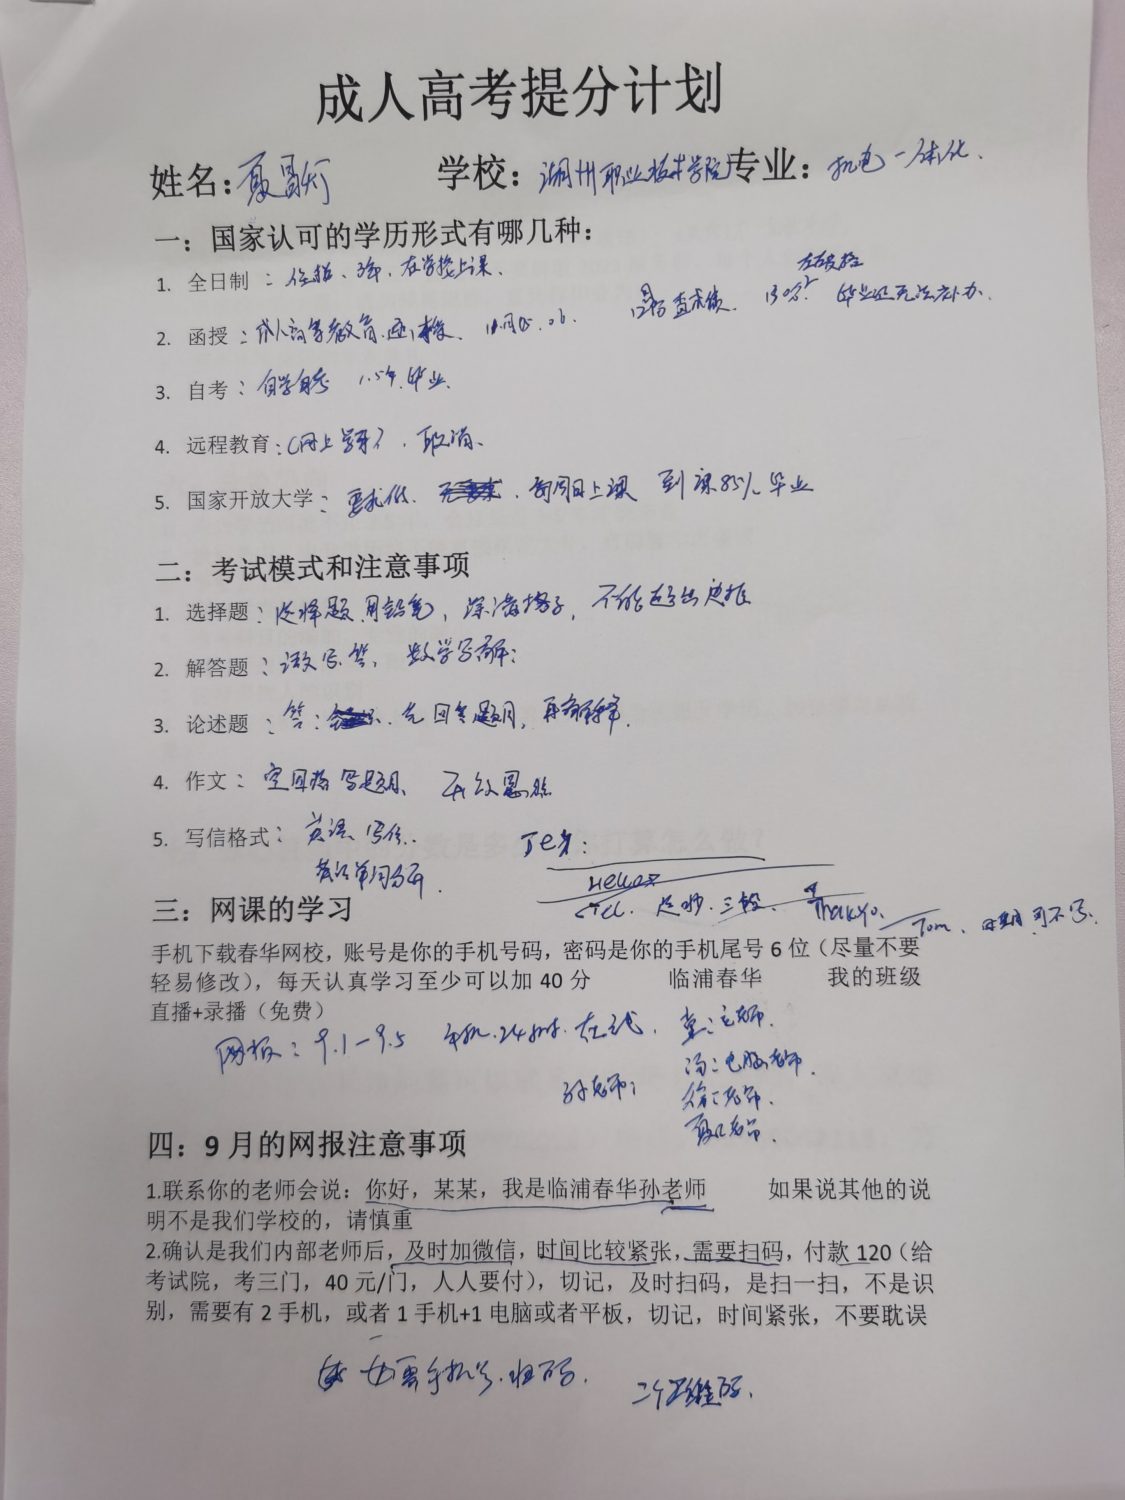 成人高考提分计划
姓名: 夏 学校: 湖州职业技术学院 专业: 机电一体化.
一：国家认可的学历形式有哪几种：
1. 全日制： 在学校上课.
左右
2. 函授：成人高等教育.函授、 12月 查成绩. 130分 毕业证无法补办.
3. 自考：自学自考 1.5年.毕业.
4. 远程教育： 取消、
5. 国家开放大学：要求低. 每周日上课 到课85% 毕业
二：考试模式和注意事项
1. 选择题：选择题.用铅笔，涂满格子，不能超出边框
2. 解答题：语文写.答， 数学写解：
3. 论述题：答： 先回答题目，再解释.
4. 作文：空四格写题目、
5. 写信格式：英语、写信.
英语单词分开.
三：网课的学习
三段、 日期可不写.
Tom、
手机下载春华网校，账号是你的手机号码，密码是你的手机尾号 6 位（尽量不要
轻易修改），每天认真学习至少可以加 40 分 临浦春华 我的班级
直播+录播（免费）
网报：9.1-9.5 手机.24小时.在线. 老师.
冯：电脑老师.
孙老师； 徐：老师.
夏：老师.
四：9 月的网报注意事项
1.联系你的老师会说：你好，某某，我是临浦春华孙老师 如果说其他的说
明不是我们学校的，请慎重
2.确认是我们内部老师后，及时加微信，时间比较紧张，需要扫码，付款 120（给
考试院，考三门，40 元/门，人人要付），切记，及时扫码，是扫一扫，不是识
别，需要有 2 手机，或者 1 手机+1 电脑或者平板，切记，时间紧张，不要耽误
手机号. 二个二维码.